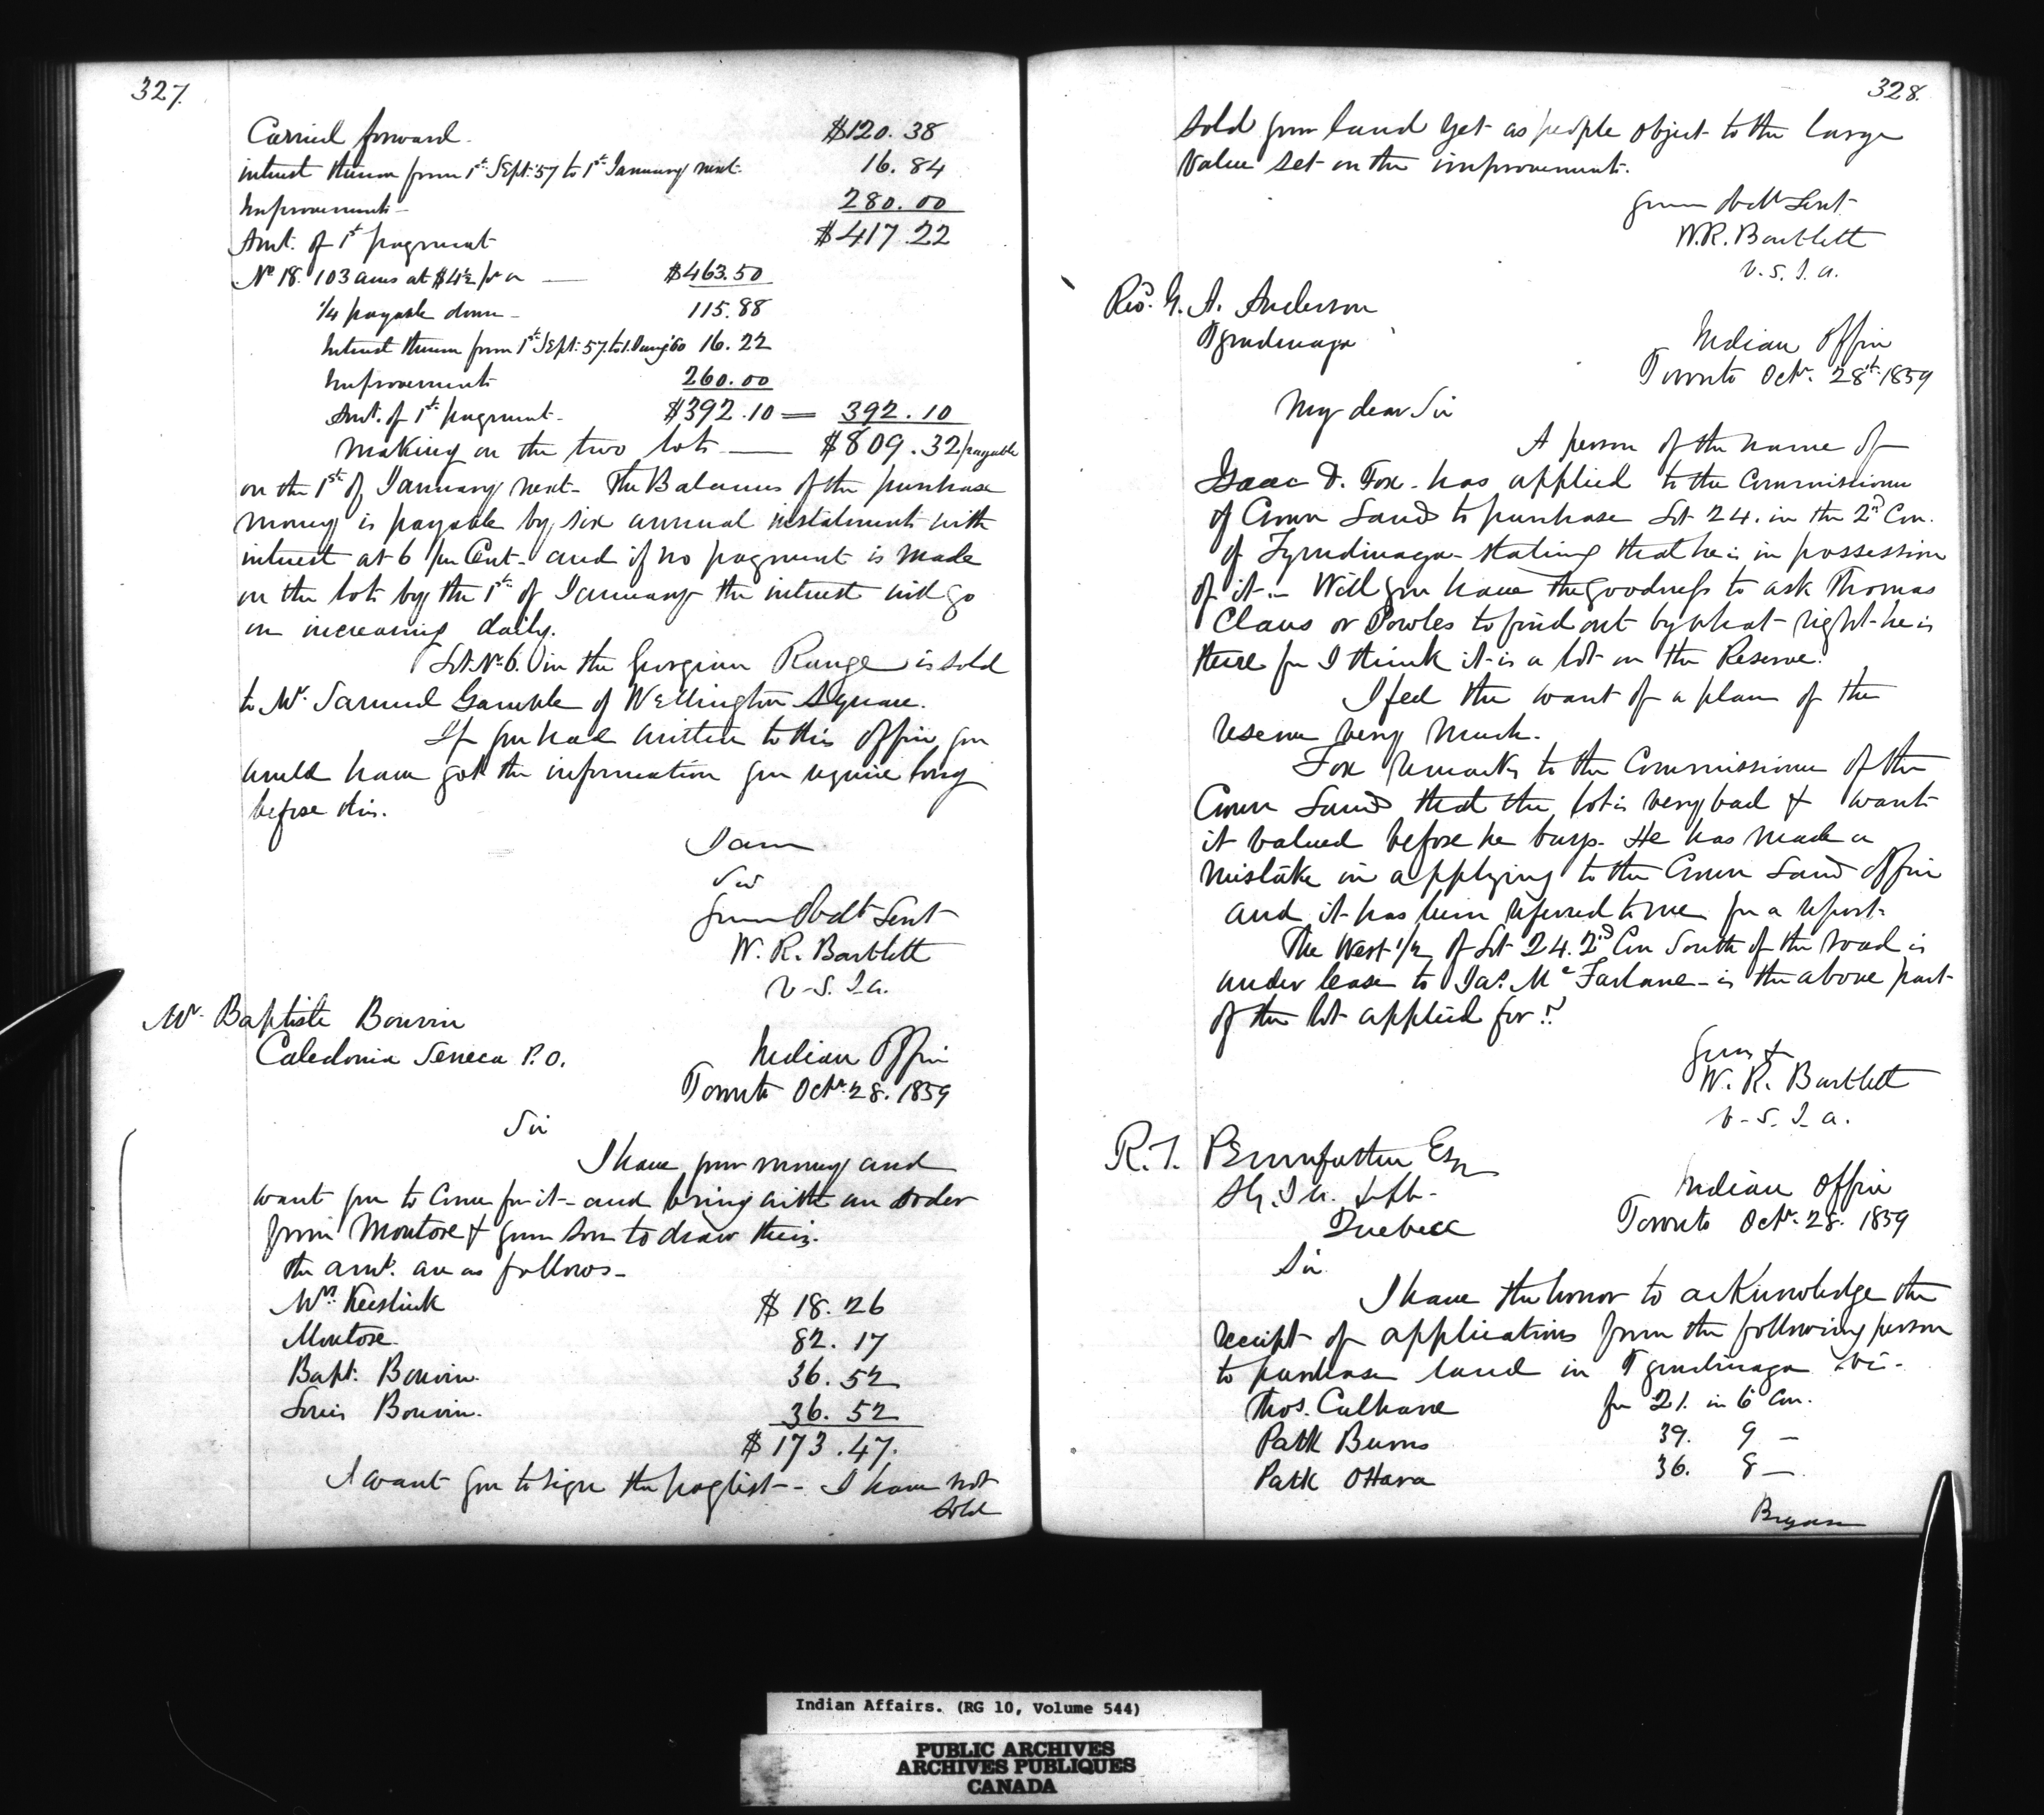 327.
Carried forward. $120.38
interest thereon from 1st Sept: 57 to 1st January next. 16.84
Improvements — 280.00
Amt. of 1st payment $417.22
No 18. 103 acres at $4½ pr a — $463.50
1/4 payable down — 115.88
Interest thereon from 1st Sept: 57 to 1. Jany 60 16.22
Improvements 260.00
Amt. of 1st payment — $392.10 = 392.10
Making on the two lots — $809.32 payable
on the 1st of January next — The Balance of the purchase
money is payable by six annual instalments with
interest at 6 per Cent — and if no payment is made
on the lots by the 1st of January the interest will go
on increasing daily.
Lot No 6. in the Georgian Range is sold
to Mr. Samuel Gamble of Wellington Square.
If you had written to this office you
would have got the information you require long
before this.
I am
Sir
Your Obdt Servt
W. R. Bartlett
V.S.I.a.
Mr. Baptiste Bouvin
Caledonia Seneca P.O.
Indian Office
Toronto Octr. 28. 1859
Sir
I have your money and
want you to come for it — and bring with an order
from Montore & your son to draw theirs.
the amts. are as follows —
Mrs. $18.26
Montore 82.17
Bapt: Bouvin. 36.52
Louis Bouvin. 36.52
$173.47.
I want you to sign the paylist — I have not
sold
328.
sold your land yet as people object to the large
value set on the improvements.
Your Obdt Servt
W.R. Bartlett
V.S.I.a.
Revd. G. A. Anderson
Tyendinaga
Indian Office
Toronto Octr. 28th 1859
My dear Sir
A person of the name of
Isaac D. Fox — has applied to the Commissioner
of Crown Lands to purchase Lot 24. in the 2nd Con.
of Tyendinaga — stating that he is in possession
of it. — Will you have the goodness to ask Thomas
Claus or Powles to find out by what right he is
there for I think it is a lot on the Reserve.
I feel the want of a plan of the
reserve very much.
Fox remarks to the Commissioner of the
Crown Lands that the lot is very bad & wants
it valued before he buys. He has made a
mistake in applying to the Crown Land office
and it has been referred to me for a report.
The West 1/2 of Lot 24. 2nd Con South of the road is
under lease to Jas. McFarlane — is the above part
of the lot applied for?
Yours &
W. R. Bartlett
V.S.I.a.
R. T. Pennefather Esqr
Quebec
Indian Office
Toronto Octr. 28. 1859
Sir
I have the honor to acknowledge the
receipt of applications from the following person
to purchase land in Tyendinaga viz —
Thos. Culhane for 21. in 6 Con.
Patk Burns 39. 9 —
Patk OHara 36. 8 —
Bryan
Indian Affairs. (RG 10, Volume 544)
PUBLIC ARCHIVES
ARCHIVES PUBLIQUES
CANADA